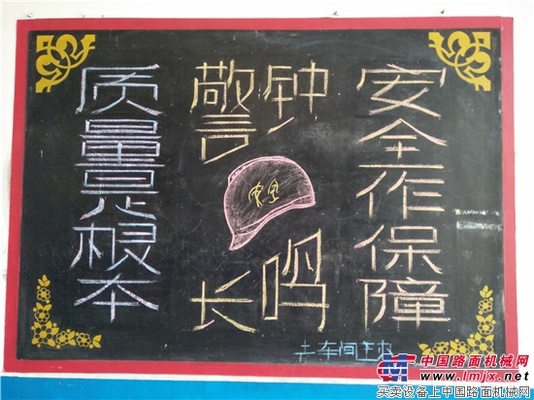 质量是根本
警钟
长鸣
安全作保障
车间
中国路面机械网
www.lmjx.net
买卖设备上中国路面机械网